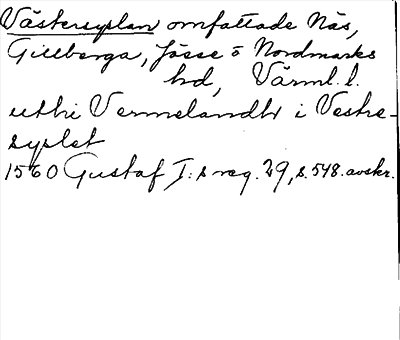 Västersyslan omfattade Näs,
Gillberga, Jösse o Nordmarks
hd, Värml. l.
uthi Vermelandh i Vestre-
syslet
1560 Gustaf I:s reg. 29, s. 548. avskr.